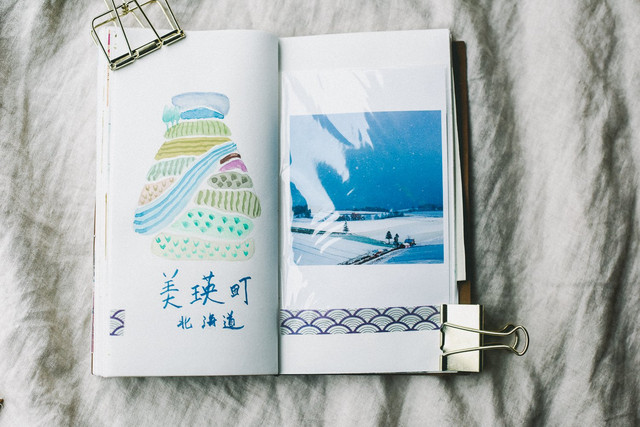 美瑛町
北海道